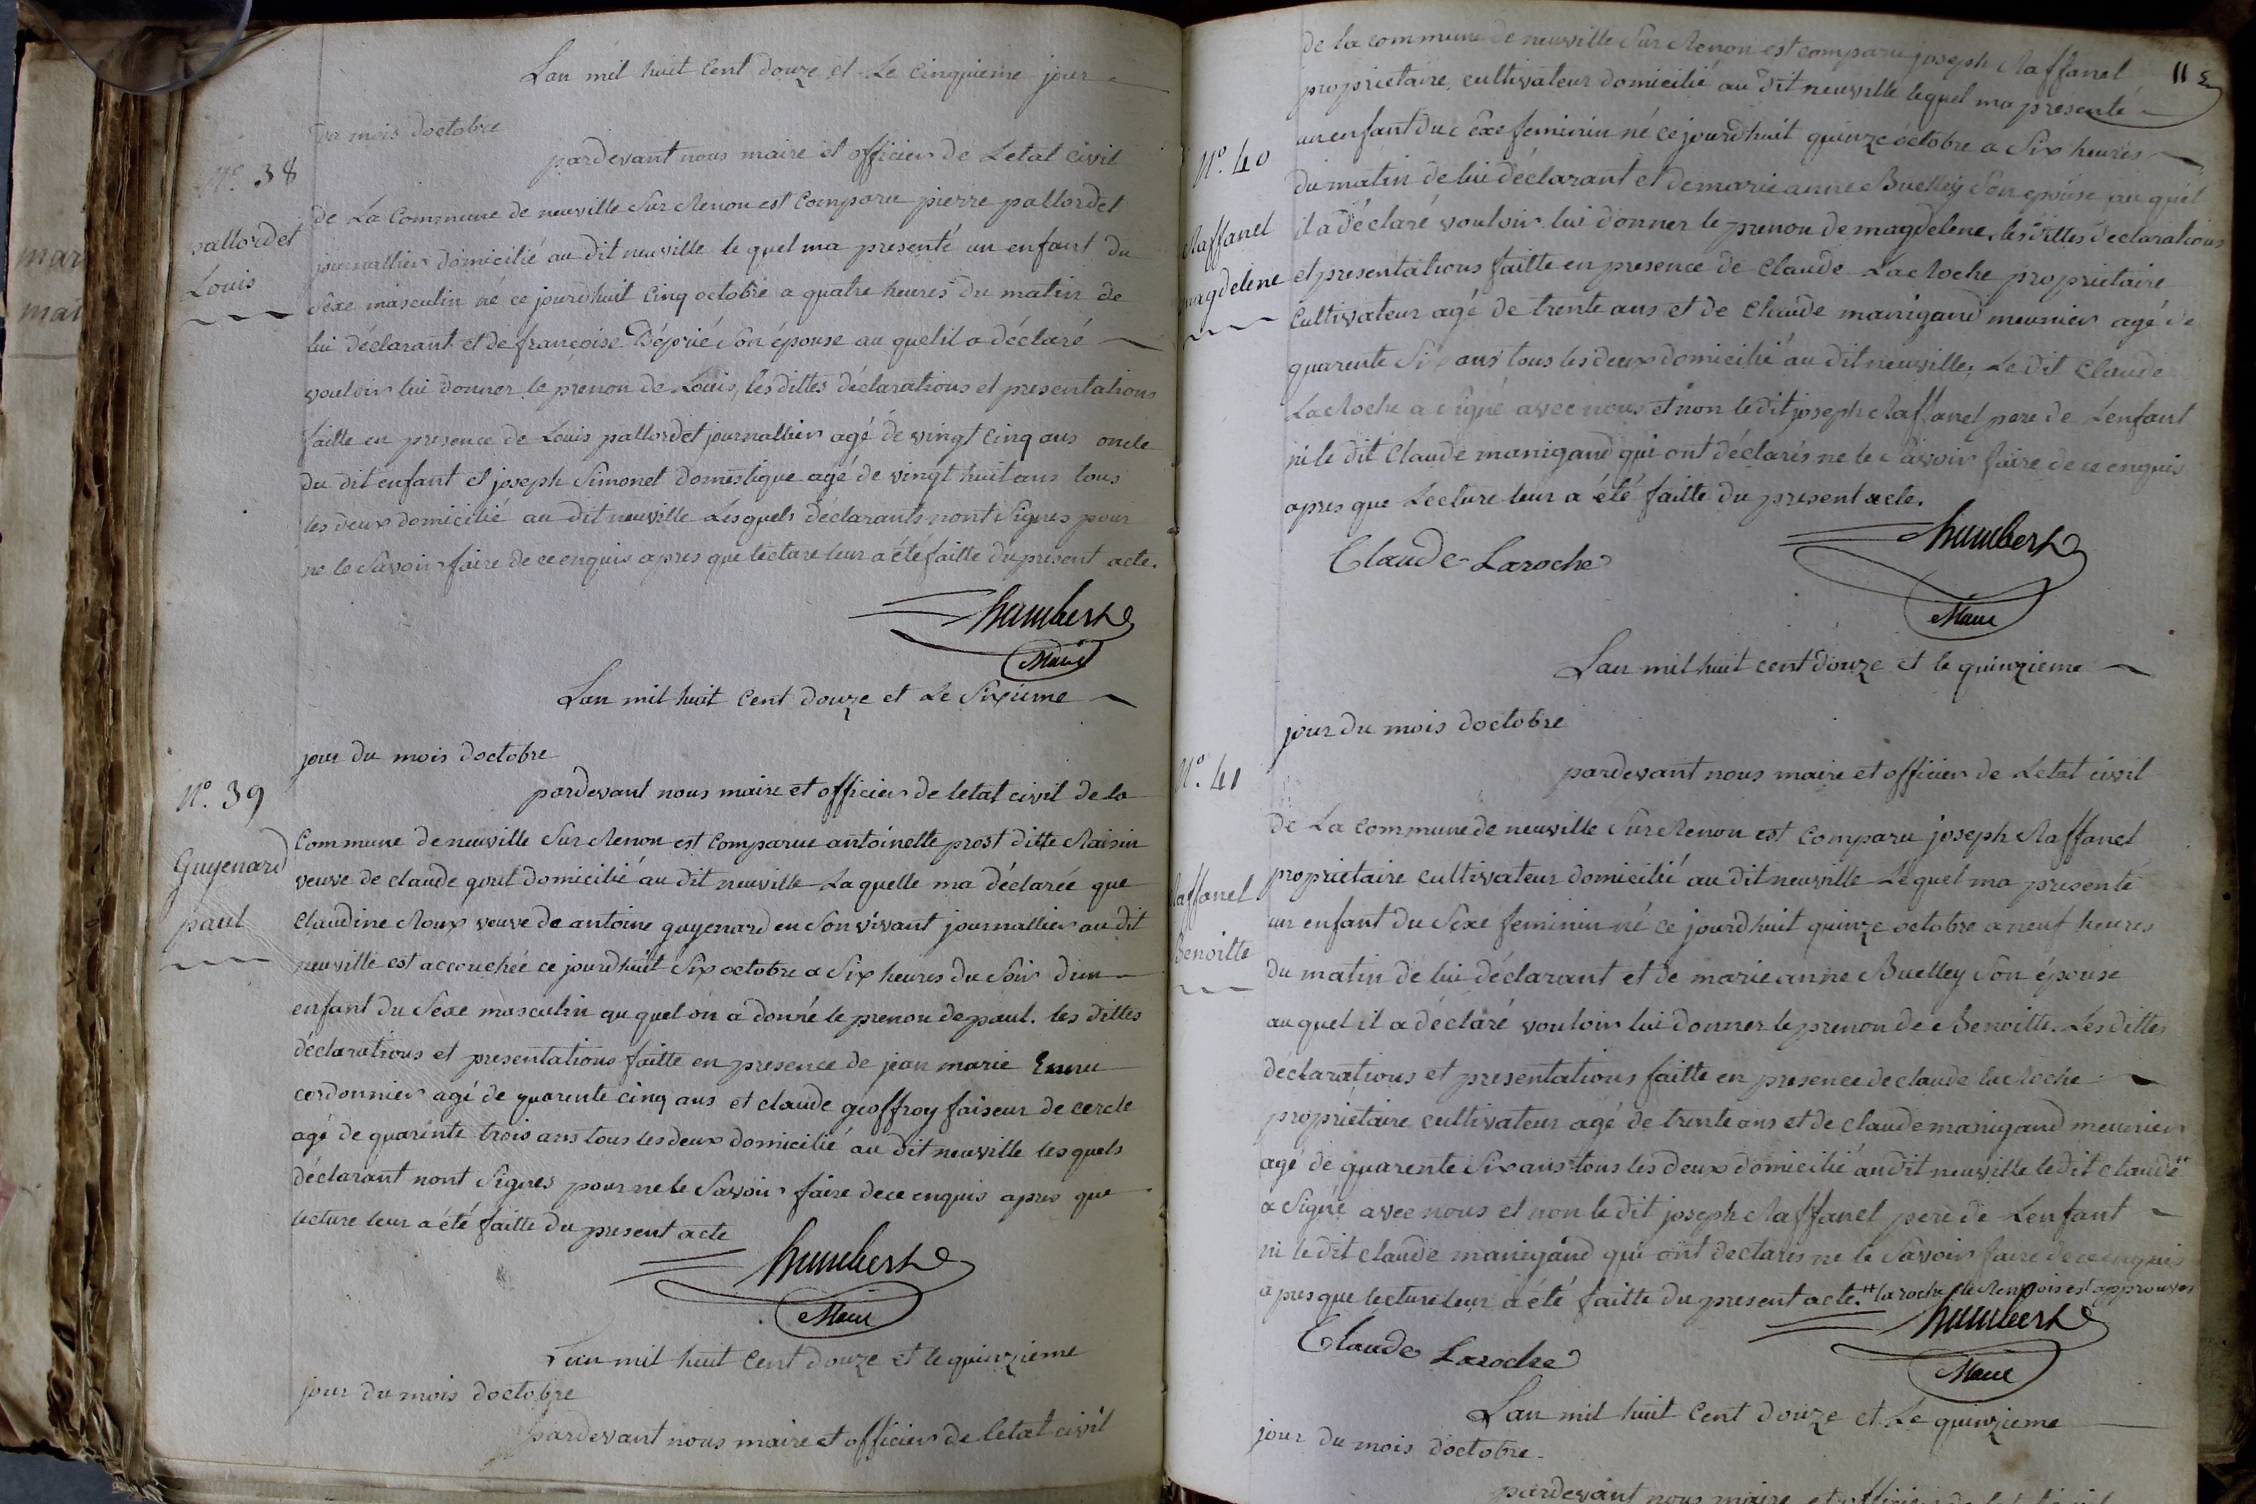 mar
mar
Lan mil huit Cent douze et Le cinquieme jour
du mois doctobre
N.o 38
pallordet
Louis
pardevant nous maire et officier de Letat civil
de La Commune de neuville Sur Renon est Comparu pierre pallordet
journallier domicilié au dit neuville le quel ma presenté un enfant du
Sexe masculin né ce jourdhuit Cinq octobre a quatre heures du matin de
lui déclarant et de françoise Déprié Son épouse au quel il a déclaré
vouloir lui donner le prenon de Louis, les dittes déclarations et presentations
faitte en presence de Louis pallordet journallier agé de vingt Cinq ans oncle
du dit enfant et joseph Simonet domestique agé de vingt huit ans tous
les deux domicilié au dit neuville Lesquels déclarants nont Signes pour
ne le Savoir faire de ce enquis apres que lecture leur a été faitte du present acte.
humbert
Maire
Lan mil huit Cent douze et Le Sixieme
jour du mois doctobre
N.o 39
Guyenard
paul
pardevant nous maire et officier de letat civil de la
Commune de neuville Sur Renon est Comparue antoinette prost ditte Raisin
veuve de claude gout domicilié au dit neuville La quelle ma déclarée que
Claudine Roux veuve de antoine guyenard en Son vivant journallier au dit
neuville est accouchée ce jourdhuit Six octobre a Six heures du Soir dun
enfant du Sexe masculin au quel on a donné le prenon de paul. les dittes
déclarations et presentations faitte en presence de jean marie
cordonnier agé de quarente cinq ans et claude geoffroy faiseur de cercle
agé de quarente trois ans tous les deux domicilié au dit neuville les quels
déclarant nont Signes pour ne le Savoir faire de ce enquis apres que
lecture leur a été faitte du present acte
humbert
Maire
Lan mil huit Cent douze et le quinzieme
jour du mois doctobre
pardevant nous maire et officier de letat civil
de la commune de neuville Sur Renon est comparu joseph Raffanel
propriétaire, cultivateur domicilié au dit neuville lequel ma presenté
un enfant du Sexe feminin né ce jourdhuit quinze octobre a Six heures
N.o 40
Raffanel
magdelene
du matin de lui déclarant et de marie anne Buelley Son epouse au quel
il a déclaré vouloir lui donner le prenon de magdelene, les dittes declarations
et presentations faitte en presence de Claude LaRoche propriétaire
Cultivateur agé de trente ans et de Claude manigand meunier agé de
quarente Six ans tous les deux domicilié au dit neuville, Le dit Claude
LaRoche a Signé avec nous et non le dit joseph Raffanel pere de Lenfant
ni le dit Claude manigand qui ont déclarés ne le Savoir faire de ce enquis
apres que Lecture leur a été faitte du present acte.
Claude Laroche
humbert
Maire
Lan mil huit cent douze et le quinzieme
jour du mois doctobre
N.o 41
Raffanel
Benoitte
pardevant nous maire et officier de Letat civil
de La commune de neuville Sur Renon est Comparu joseph Raffanel
propriétaire cultivateur domicilié au dit neuville Lequel ma presenté
un enfant du Sexe feminin né ce jourdhuit quinze octobre a neuf heures
du matin de lui déclarant et de marie anne Buelley Son épouse
au quel il a déclaré vouloir lui donner le prenon de Benoitte. Les dittes
déclarations et presentations faitte en presence de claude laRoche
propriétaire cultivateur agé de trente ans et de claude manigand meunier
agé de quarente Six ans tous les deux domicilié au dit neuville le dit claude
a Signé avec nous et non le dit joseph Raffanel pere de Lenfant
ni le dit claude manigand qui ont declarés ne le Savoir faire de ce enquis
apres que lecture leur a été faitte du present acte. laroche le Renvois est approuvés
Claude Laroche
humbert
Maire
Lan mil huit Cent douze et Le quinzieme
jour du mois doctobre.
pardevant nous maire et officier de letat civil